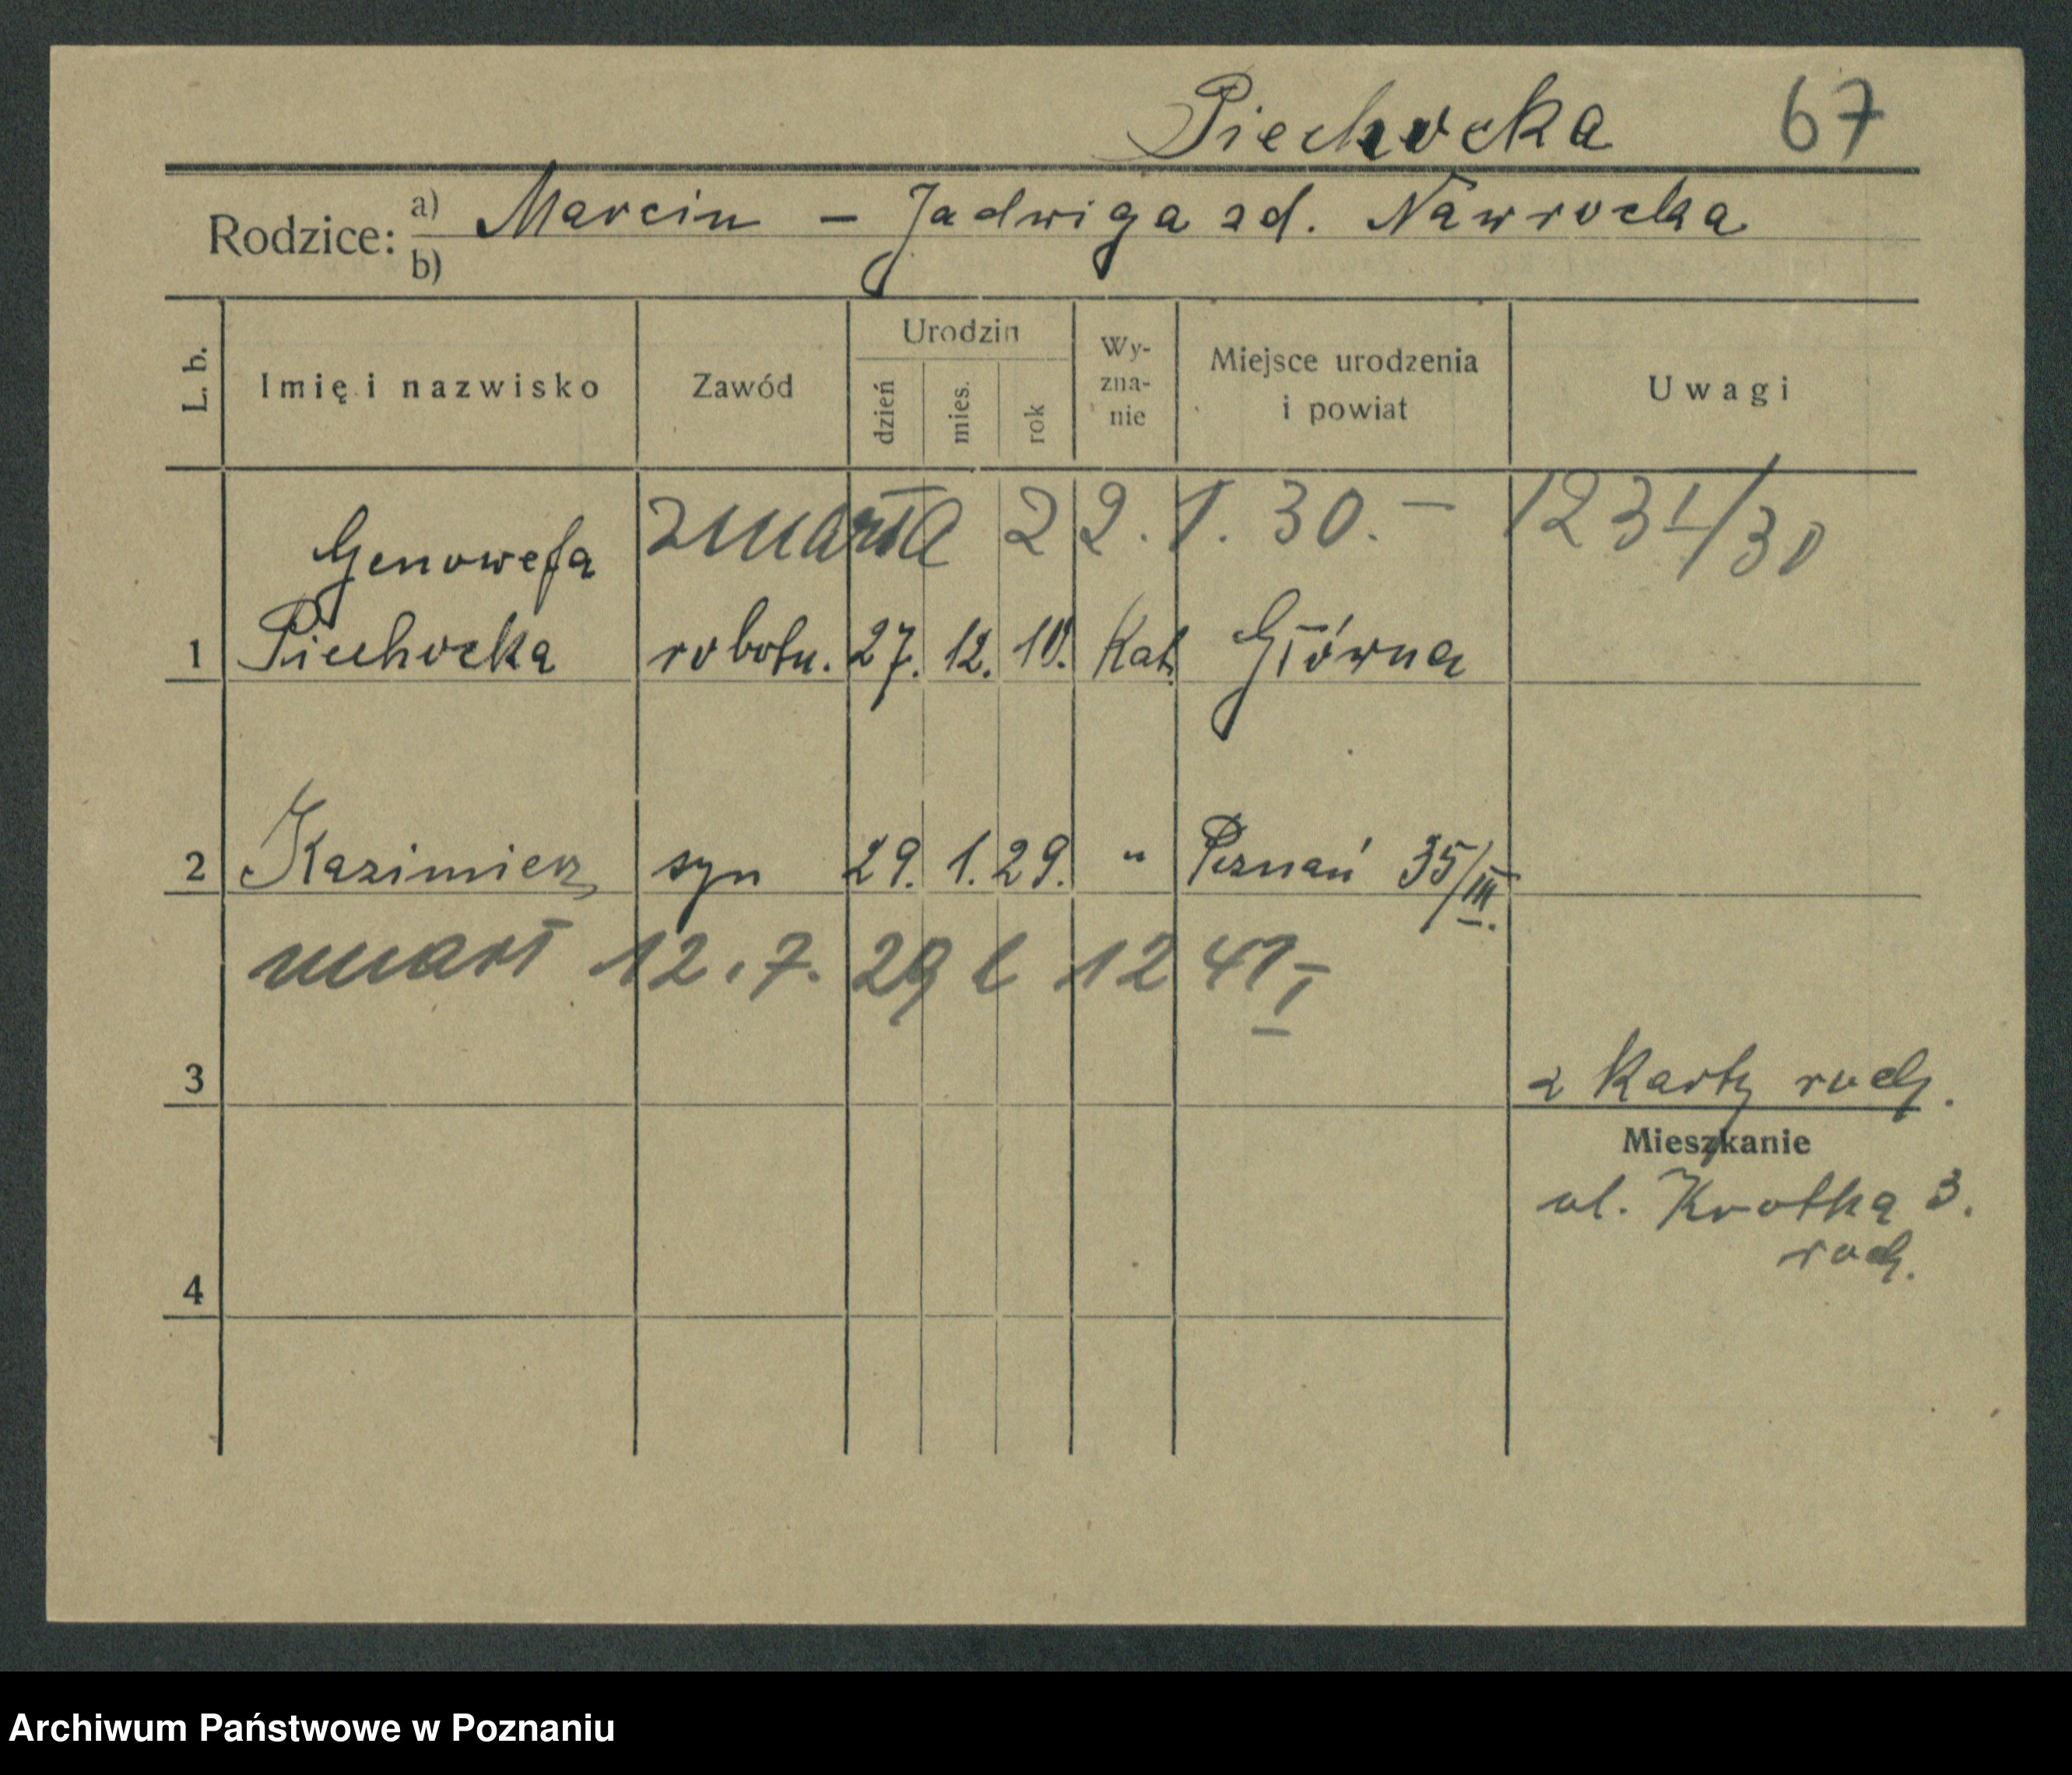 Piechocka 67
Rodzice: a) Marcin – Jadwiga zd. Nawrocka
b)
L. b. Imię i nazwisko Zawód Urodzin dzień mies. rok Wyzna-nie Miejsce urodzenia i powiat Uwagi
zmarła 22. 1. 30. – 123 I/30
Genowefa
1 Piechocka robotn. 27. 12. 10. Kat. Główna
2 Kazimierz syn 29. 1. 29. " Poznań 35/III.
zmarł 12. 7. 29
3 z karty rodz.
Mieszkanie
ul. Krótka 3.
rodz.
4
Archiwum Państwowe w Poznaniu